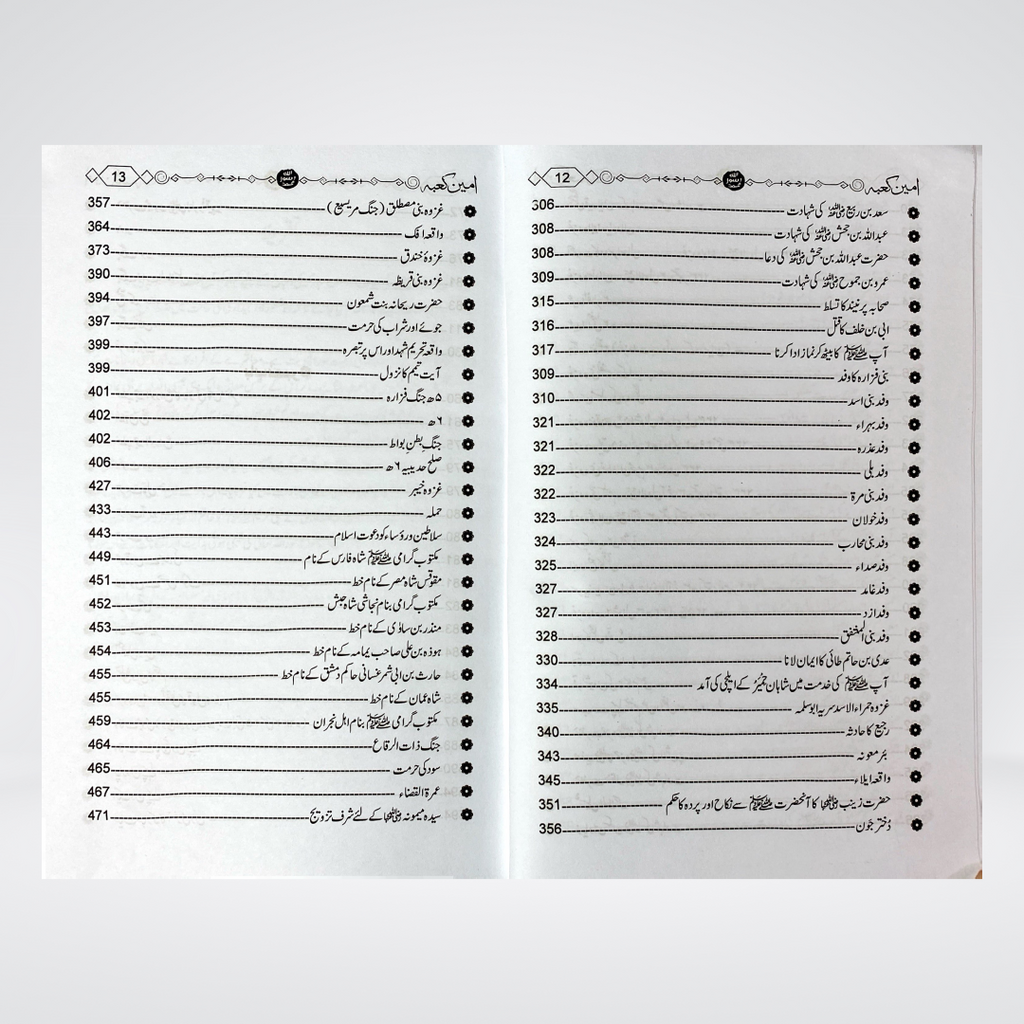 امین کعبہ 12
سعد بن ربیع رضی اللہ عنہ کی شہادت 306
عبداللہ بن جحش رضی اللہ عنہ کی شہادت 308
حضرت عبداللہ بن جحش رضی اللہ عنہ کی دعا 308
عمرو بن جموح رضی اللہ عنہ کی شہادت 309
صحابہ پر نیند کا تسلط 315
ابی بن خلف کا قتل 316
آپ ﷺ کا بیٹھ کر نماز ادا کرنا 317
بنی فزارہ کا وفد 309
وفد بنی اسد 310
وفد بہراء 321
وفد عذرہ 321
وفد بلی 322
وفد بنی مرۃ 322
وفد خولان 323
وفد بنی محارب 324
وفد صداء 325
وفد غامد 327
وفد ازد 327
وفد بنی المخفق 328
عدی بن حاتم طائی کا ایمان لانا 330
آپ ﷺ کی خدمت میں شاہان حِمْیَر کے ایلچی کی آمد 334
غزوہ حمراء الاسد سریہ ابو سلمہ 335
رجیع کا حادثہ 340
بئر معونہ 343
واقعہ ایلاء 345
حضرت زینب رضی اللہ عنہا کا آنحضرت ﷺ سے نکاح اور پردہ کا حکم 351
دُختر جَون 356
امین کعبہ 13
غزوہ بنی مصطلق (جنگ مریسیع) 357
واقعہ افک 364
غزوۂ خندق 373
غزوہ بنی قریظہ 390
حضرت ریحانہ بنت شمعون 394
جوئے اور شراب کی حرمت 397
واقعہ تحریم شہد اور اس پر تبصرہ 399
آیت تیمّم کا نزول 399
۵ھ جنگ فزارہ 401
۶ھ 402
جنگ بطنِ بواط 402
صلح حدیبیہ ۶ھ 406
غزوہ خیبر 427
حملہ 433
سلاطین و رؤساء کو دعوت اسلام 443
مکتوب گرامی ﷺ شاہ فارس کے نام 449
مقوقس شاہ مصر کے نام خط 451
مکتوب گرامی بنام نجاشی شاہ حبش 452
منذر بن ساوٰی کے نام خط 453
ہوذہ بن علی صاحب یمامہ کے نام خط 454
حارث بن ابی شمر غسانی حاکم دمشق کے نام خط 455
شاہ عمان کے نام خط 455
مکتوب گرامی ﷺ بنام اہل نجران 459
جنگ ذات الرقاع 464
سود کی حرمت 465
عمرۃ القضاء 467
سیدہ میمونہ رضی اللہ عنہا کے لئے شرف تزویج 471